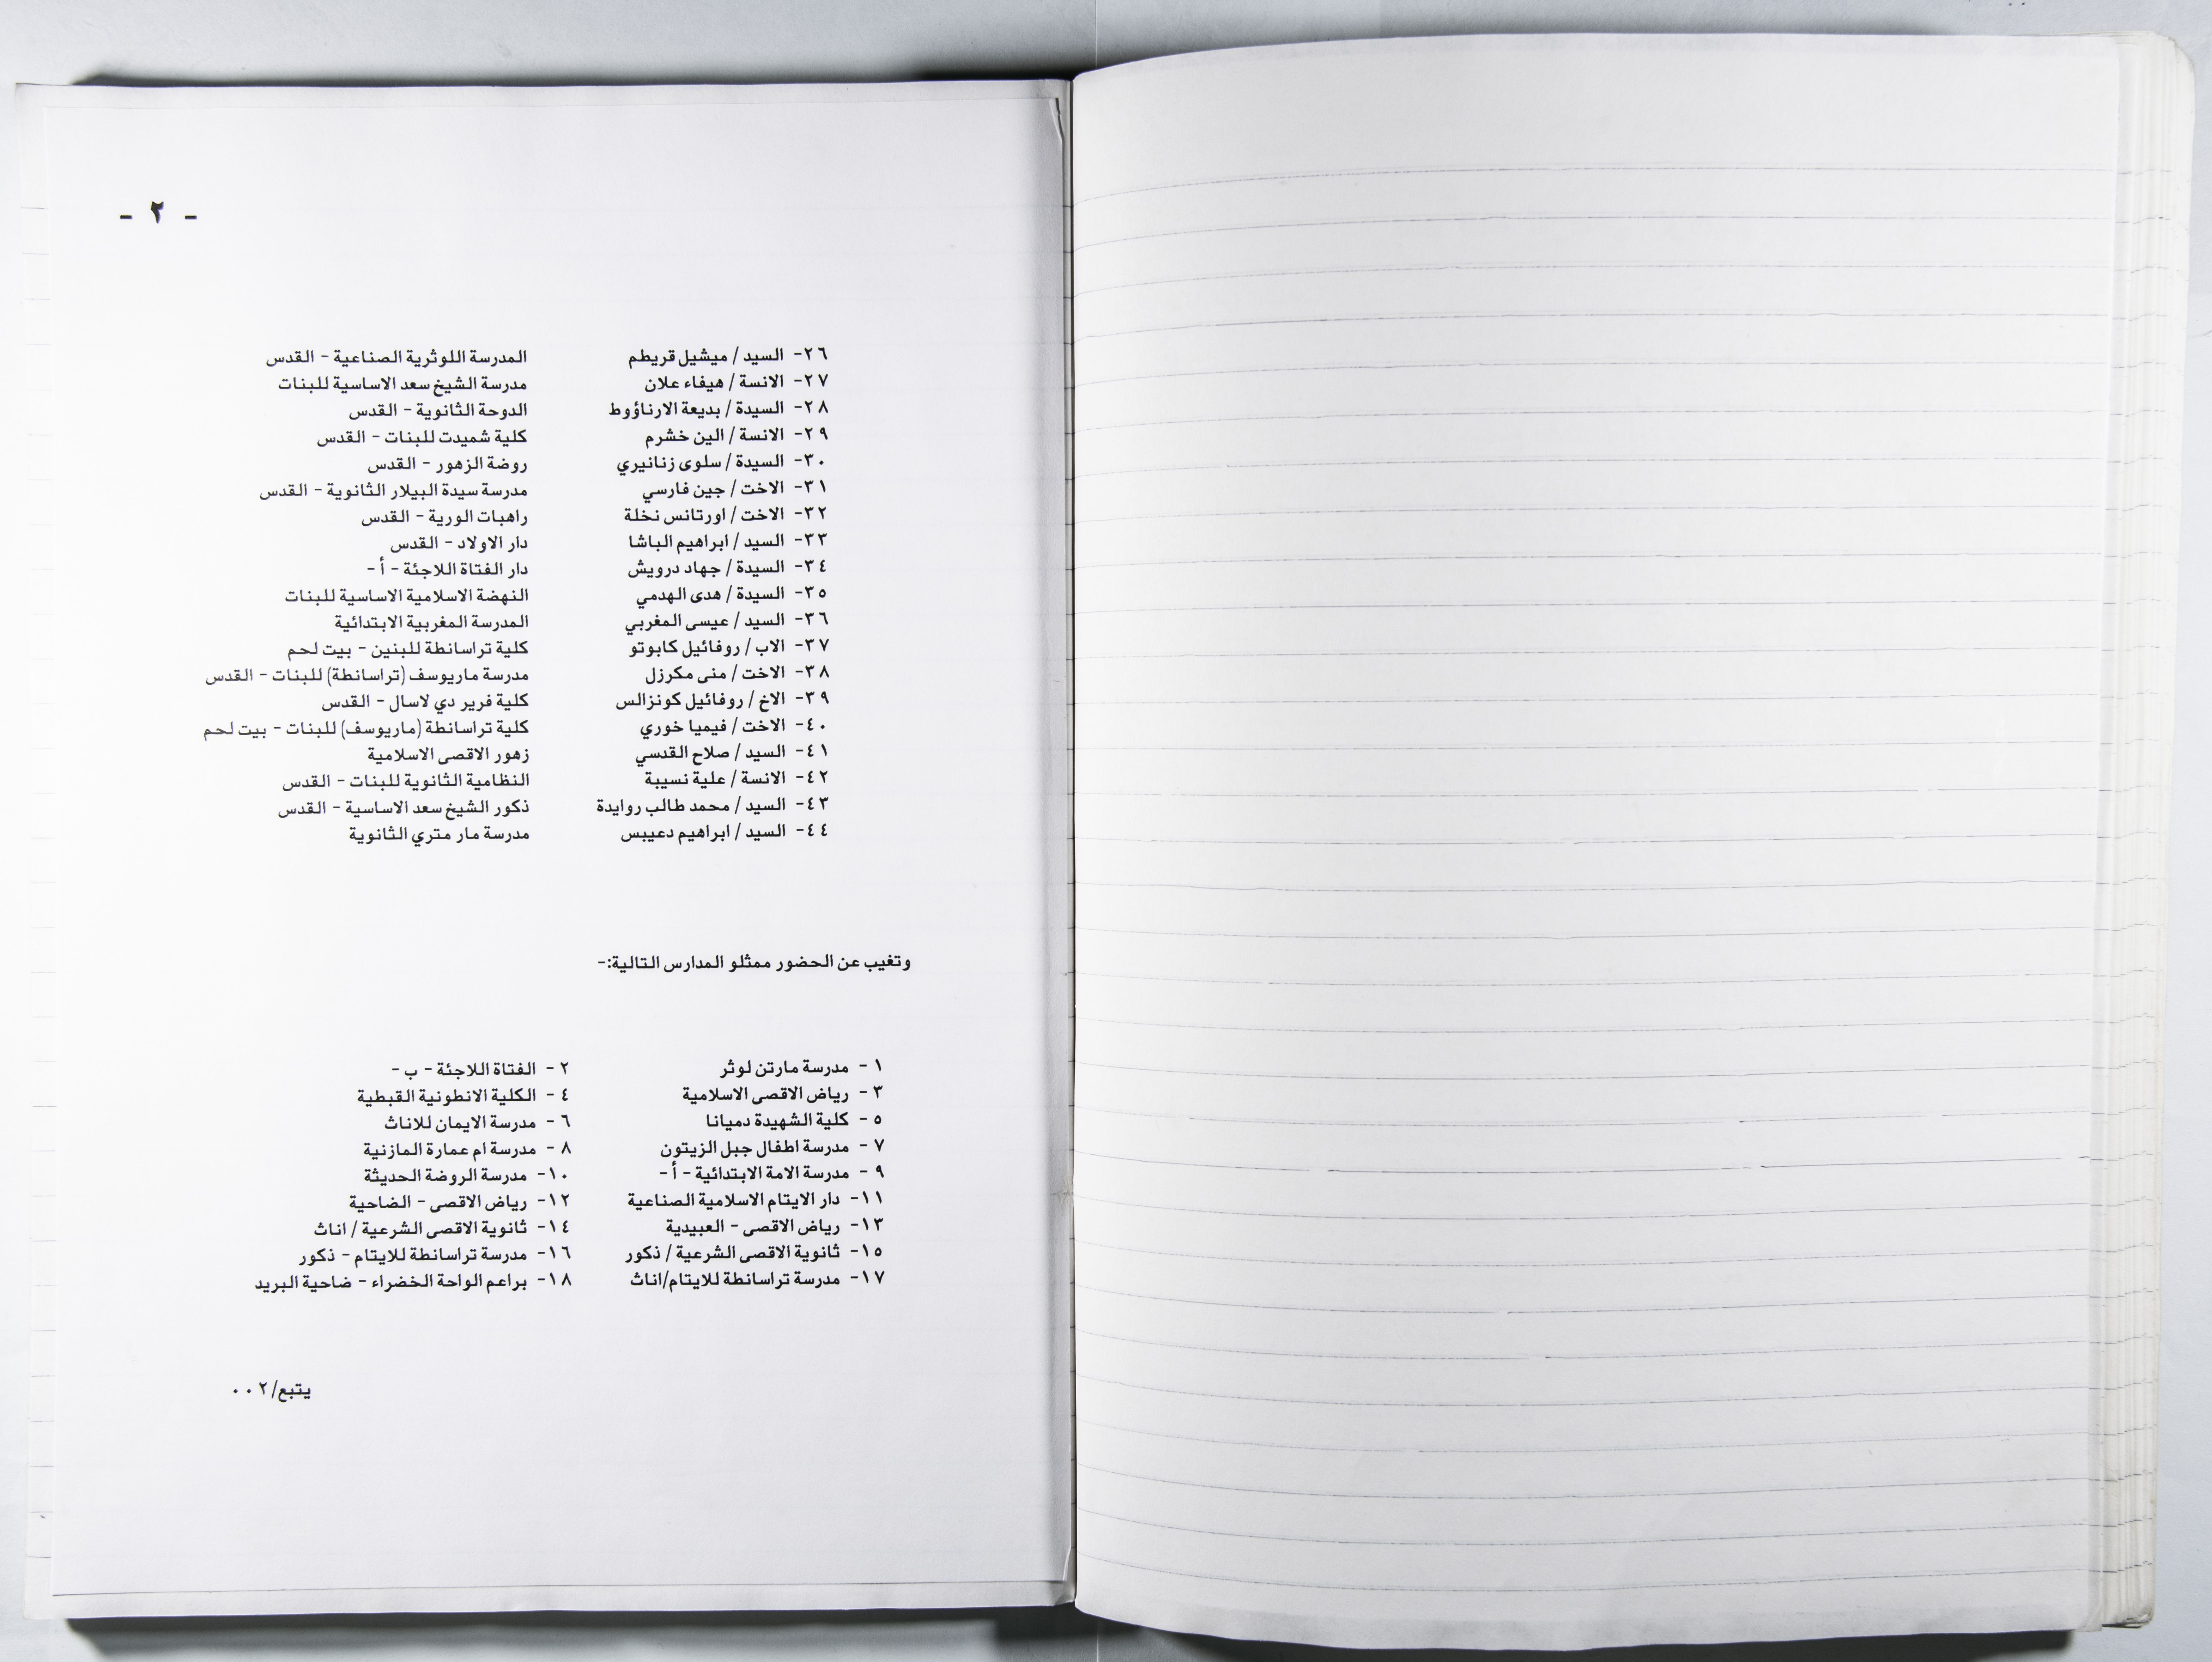 - ٢ -
٢٦- السيد / ميشيل قريطم المدرسة اللوثرية الصناعية - القدس
٢٧- الانسة / هيفاء علان مدرسة الشيخ سعد الاساسية للبنات
٢٨- السيدة / بديعة الارناؤوط الدوحة الثانوية - القدس
٢٩- الانسة / الين خشرم كلية شميدت للبنات - القدس
٣٠- السيدة / سلوى زنانيري روضة الزهور - القدس
٣١- الاخت / جين فارسي مدرسة سيدة البيلار الثانوية - القدس
٣٢- الاخت / اورتانس نخلة راهبات الوردية - القدس
٣٣- السيد / ابراهيم الباشا دار الاولاد - القدس
٣٤- السيدة / جهاد درويش دار الفتاة اللاجئة - أ -
٣٥- السيدة / هدى الهدمي النهضة الاسلامية الاساسية للبنات
٣٦- السيد / عيسى المغربي المدرسة المغربية الابتدائية
٣٧- الاب / روفائيل كابوتو كلية تراسانطة للبنين - بيت لحم
٣٨- الاخت / منى مكرزل مدرسة ماريوسف (تراسانطة) للبنات - القدس
٣٩- الاخ / روفائيل كونزالس كلية فرير دي لاسال - القدس
٤٠- الاخت / فيميا خوري كلية تراسانطة (ماريوسف) للبنات - بيت لحم
٤١- السيد / صلاح القدسي زهور الاقصى الاسلامية
٤٢- الانسة / علية نسيبة النظامية الثانوية للبنات - القدس
٤٣- السيد / محمد طالب روايدة ذكور الشيخ سعد الاساسية - القدس
٤٤- السيد / ابراهيم دعيبس مدرسة مار متري الثانوية
وتغيب عن الحضور ممثلو المدارس التالية:-
١ - مدرسة مارتن لوثر ٢ - الفتاة اللاجئة - ب -
٣ - رياض الاقصى الاسلامية ٤ - الكلية الانطونية القبطية
٥ - كلية الشهيدة دميانا ٦ - مدرسة الايمان للاناث
٧ - مدرسة اطفال جبل الزيتون ٨ - مدرسة ام عمارة المازنية
٩ - مدرسة الامة الابتدائية - أ - ١٠- مدرسة الروضة الحديثة
١١- دار الايتام الاسلامية الصناعية ١٢- رياض الاقصى - الضاحية
١٣- رياض الاقصى - العبيدية ١٤- ثانوية الاقصى الشرعية / اناث
١٥- ثانوية الاقصى الشرعية / ذكور ١٦- مدرسة تراسانطة للايتام - ذكور
١٧- مدرسة تراسانطة للايتام/اناث ١٨- براعم الواحة الخضراء - ضاحية البريد
يتبع/٢٠٠